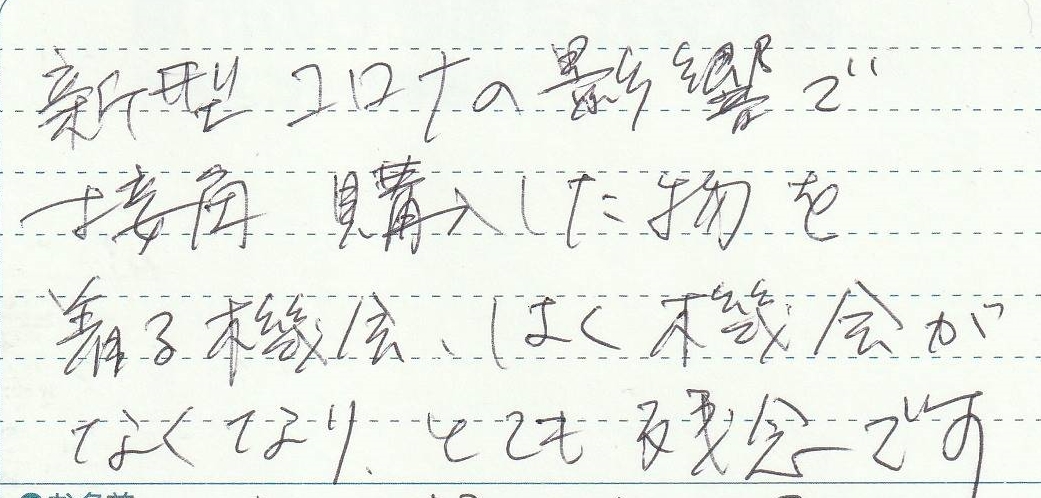 新型コロナの影響で
接角 購入した物を
着る機会、はく機会が
なくなり、とても残念です
お名前